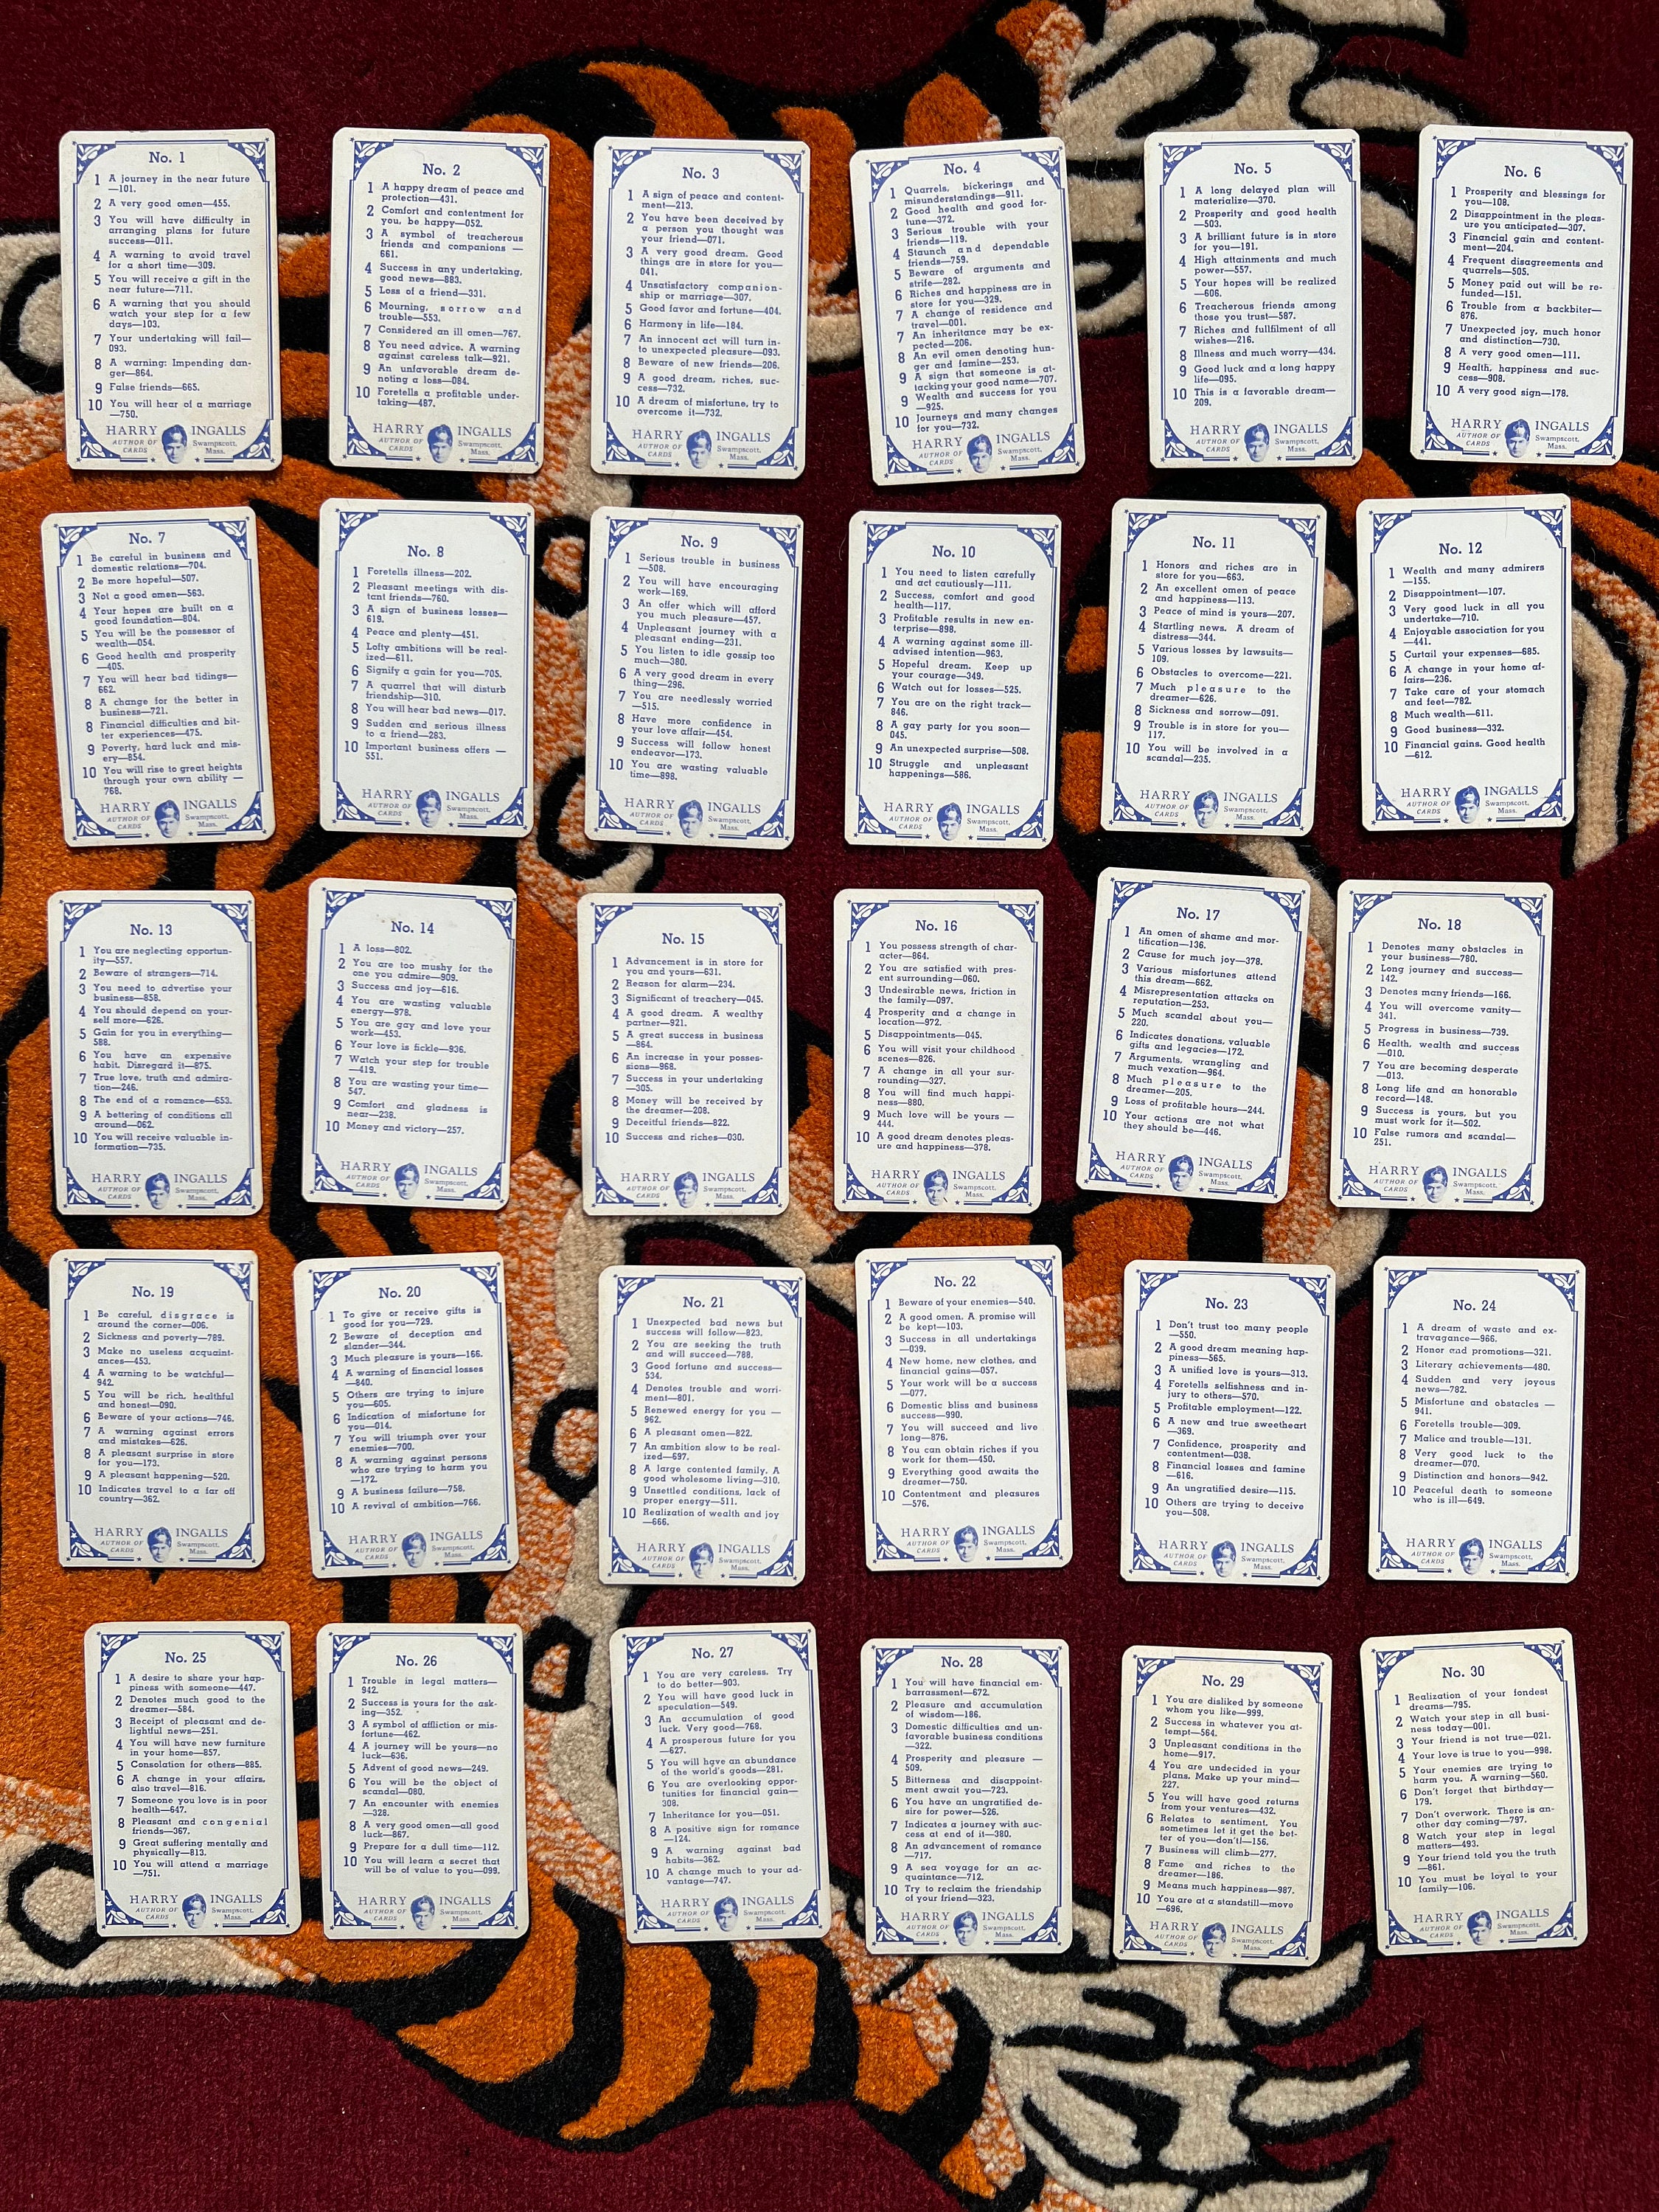 No. 1
1 A journey in the near future
—101.
2 A very good omen—455.
3 You will have difficulty in
arranging plans for future
success—011.
4 A warning to avoid travel
for a short time—309.
5 You will receive a gift in the
near future—711.
6 A warning that you should
watch your step for a few
days—103.
7 Your undertaking will fail—
093.
8 A warning: Impending dan-
ger—864.
9 False friends—665.
10 You will hear of a marriage
—750.
HARRY INGALLS
AUTHOR OF CARDS
Swampscott, Mass.
No. 2
1 A happy dream of peace and
protection—431.
2 Comfort and contentment for
you, be happy—052.
3 A symbol of treacherous
friends and companions—
661.
4 Success in any undertaking,
good news—883.
5 Loss of a friend—331.
6 Mourning, sorrow and
trouble—553.
7 Considered an ill omen—767.
8 You need advice. A warning
against careless talk—921.
9 An unfavorable dream de-
noting a loss—084.
10 Foretells a profitable under-
taking—487.
HARRY INGALLS
AUTHOR OF CARDS
Swampscott, Mass.
No. 3
1 A sign of peace and content-
ment—213.
2 You have been deceived by
a person you thought was
your friend—071.
3 A very good dream. Good
things are in store for you—
041.
4 Unsatisfactory companion-
ship or marriage—307.
5 Good favor and fortune—404.
6 Harmony in life—184.
7 An innocent act will turn in-
to unexpected pleasure—093.
8 Beware of new friends—206.
9 A good dream, riches, suc-
cess—732.
10 A dream of misfortune, try to
overcome it—732.
HARRY INGALLS
AUTHOR OF CARDS
Swampscott, Mass.
No. 4
1 Quarrels, bickerings and
misunderstandings—911.
2 Good health and good for-
tune—372.
3 Serious trouble with your
friends—119.
4 Staunch and dependable
friends—759.
5 Beware of arguments and
strife—282.
6 Riches and happiness are in
store for you—329.
7 A change of residence and
travel—001.
7 An inheritance may be ex-
pected—206.
8 An evil omen denoting hun-
ger and famine—253.
9 A sign that someone is at-
tacking your good name—707.
9 Wealth and success for you
—925.
10 Journeys and many changes
for you—732.
HARRY INGALLS
AUTHOR OF CARDS
Swampscott, Mass.
No. 5
1 A long delayed plan will
materialize—370.
2 Prosperity and good health
—503.
3 A brilliant future is in store
for you—191.
4 High attainments and much
power—557.
5 Your hopes will be realized
—606.
6 Treacherous friends among
those you trust—587.
7 Riches and fullfilment of all
wishes—216.
8 Illness and much worry—434.
9 Good luck and a long happy
life—095.
10 This is a favorable dream—
209.
HARRY INGALLS
AUTHOR OF CARDS
Swampscott, Mass.
No. 6
1 Prosperity and blessings for
you—108.
2 Disappointment in the pleas-
ure you anticipated—307.
3 Financial gain and content-
ment—204.
4 Frequent disagreements and
quarrels—505.
5 Money paid out will be re-
funded—151.
6 Trouble from a backbiter—
876.
7 Unexpected joy, much honor
and distinction—730.
8 A very good omen—111.
9 Health, happiness and suc-
cess—908.
10 A very good sign—178.
HARRY INGALLS
AUTHOR OF CARDS
Swampscott, Mass.
No. 7
1 Be careful in business and
domestic relations—704.
2 Be more hopeful—507.
3 Not a good omen—563.
4 Your hopes are built on a
good foundation—804.
5 You will be the possessor of
wealth—054.
6 Good health and prosperity
—405.
7 You will hear bad tidings—
662.
8 A change for the better in
business—721.
8 Financial difficulties and bit-
ter experiences—475.
9 Poverty, hard luck and mis-
ery—854.
10 You will rise to great heights
through your own ability—
768.
HARRY INGALLS
AUTHOR OF CARDS
Swampscott, Mass.
No. 8
1 Foretells illness—202.
2 Pleasant meetings with dis-
tant friends—760.
3 A sign of business losses—
619.
4 Peace and plenty—451.
5 Lofty ambitions will be real-
ized—611.
6 Signify a gain for you—705.
7 A quarrel that will disturb
friendship—310.
8 You will hear bad news—017.
9 Sudden and serious illness
to a friend—283.
10 Important business offers—
551.
HARRY INGALLS
AUTHOR OF CARDS
Swampscott, Mass.
No. 9
1 Serious trouble in business
—508.
2 You will have encouraging
work—169.
3 An offer which will afford
you much pleasure—457.
4 Unpleasant journey with a
pleasant ending—231.
5 You listen to idle gossip too
much—380.
6 A very good dream in every
thing—296.
7 You are needlessly worried
—515.
8 Have more confidence in
your love affair—454.
9 Success will follow honest
endeavor—173.
10 You are wasting valuable
time—898.
HARRY INGALLS
AUTHOR OF CARDS
Swampscott, Mass.
No. 10
1 You need to listen carefully
and act cautiously—111.
2 Success, comfort and good
health—117.
3 Profitable results in new en-
terprise—898.
4 A warning against some ill-
advised intention—963.
5 Hopeful dream. Keep up
your courage—349.
6 Watch out for losses—525.
7 You are on the right track—
846.
8 A gay party for you soon—
045.
9 An unexpected surprise—508.
10 Struggle and unpleasant
happenings—586.
HARRY INGALLS
AUTHOR OF CARDS
Swampscott, Mass.
No. 11
1 Honors and riches are in
store for you—663.
2 An excellent omen of peace
and happiness—113.
3 Peace of mind is yours—207.
4 Startling news. A dream of
distress—344.
5 Various losses by lawsuits—
109.
6 Obstacles to overcome—221.
7 Much pleasure to the
dreamer—626.
8 Sickness and sorrow—091.
9 Trouble is in store for you—
117.
10 You will be involved in a
scandal—235.
HARRY INGALLS
AUTHOR OF CARDS
Swampscott, Mass.
No. 12
1 Wealth and many admirers
—155.
2 Disappointment—107.
3 Very good luck in all you
undertake—710.
4 Enjoyable association for you
—441.
5 Curtail your expenses—685.
6 A change in your home af-
fairs—236.
7 Take care of your stomach
and feet—782.
8 Much wealth—611.
9 Good business—332.
10 Financial gains. Good health
—612.
HARRY INGALLS
AUTHOR OF CARDS
Swampscott, Mass.
No. 13
1 You are neglecting opportun-
ity—557.
2 Beware of strangers—714.
3 You need to advertise your
business—858.
4 You should depend on your-
self more—626.
5 Gain for you in everything—
588.
6 You have an expensive
habit. Disregard it—875.
7 True love, truth and admira-
tion—246.
8 The end of a romance—653.
9 A bettering of conditions all
around—062.
10 You will receive valuable in-
formation—735.
HARRY INGALLS
AUTHOR OF CARDS
Swampscott, Mass.
No. 14
1 A loss—802.
2 You are too mushy for the
one you admire—909.
3 Success and joy—616.
4 You are wasting valuable
energy—978.
5 You are gay and love your
work—453.
6 Your love is fickle—936.
7 Watch your step for trouble
—419.
8 You are wasting your time—
547.
9 Comfort and gladness is
near—238.
10 Money and victory—257.
HARRY INGALLS
AUTHOR OF CARDS
Swampscott, Mass.
No. 15
1 Advancement is in store for
you and yours—631.
2 Reason for alarm—234.
3 Significant of treachery—045.
4 A good dream. A wealthy
partner—921.
5 A great success in business
—864.
6 An increase in your posses-
sions—968.
7 Success in your undertaking
—305.
8 Money will be received by
the dreamer—208.
9 Deceitful friends—822.
10 Success and riches—030.
HARRY INGALLS
AUTHOR OF CARDS
Swampscott, Mass.
No. 16
1 You possess strength of char-
acter—864.
2 You are satisfied with pres-
ent surrounding—060.
3 Undesirable news, friction in
the family—097.
4 Prosperity and a change in
location—972.
5 Disappointments—045.
6 You will visit your childhood
scenes—826.
7 A change in all your sur-
rounding—327.
8 You will find much happi-
ness—880.
9 Much love will be yours—
444.
10 A good dream denotes pleas-
ure and happiness—378.
HARRY INGALLS
AUTHOR OF CARDS
Swampscott, Mass.
No. 17
1 An omen of shame and mor-
tification—136.
2 Cause for much joy—378.
3 Various misfortunes attend
this dream—662.
4 Misrepresentation attacks on
reputation—253.
5 Much scandal about you—
220.
6 Indicates donations, valuable
gifts and legacies—172.
7 Arguments, wrangling and
much vexation—964.
8 Much pleasure to the
dreamer—205.
9 Loss of profitable hours—244.
10 Your actions are not what
they should be—446.
HARRY INGALLS
AUTHOR OF CARDS
Swampscott, Mass.
No. 18
1 Denotes many obstacles in
your business—780.
2 Long journey and success—
142.
3 Denotes many friends—166.
4 You will overcome vanity—
341.
5 Progress in business—739.
6 Health, wealth and success
—010.
7 You are becoming desperate
—013.
8 Long life and an honorable
record—148.
9 Success is yours, but you
must work for it—502.
10 False rumors and scandal—
251.
HARRY INGALLS
AUTHOR OF CARDS
Swampscott, Mass.
No. 19
1 Be careful, disgrace is
around the corner—006.
2 Sickness and poverty—789.
3 Make no useless acquaint-
ances—453.
4 A warning to be watchful—
942.
5 You will be rich, healthful
and honest—090.
6 Beware of your actions—746.
7 A warning against errors
and mistakes—626.
8 A pleasant surprise in store
for you—173.
9 A pleasant happening—520.
10 Indicates travel to a far off
country—362.
HARRY INGALLS
AUTHOR OF CARDS
Swampscott, Mass.
No. 20
1 To give or receive gifts is
good for you—729.
2 Beware of deception and
slander—344.
3 Much pleasure is yours—166.
4 A warning of financial losses
—840.
5 Others are trying to injure
you—605.
6 Indication of misfortune for
you—014.
7 You will triumph over your
enemies—700.
8 A warning against persons
who are trying to harm you
—172.
9 A business failure—758.
10 A revival of ambition—766.
HARRY INGALLS
AUTHOR OF CARDS
Swampscott, Mass.
No. 21
1 Unexpected bad news but
success will follow—823.
2 You are seeking the truth
and will succeed—788.
3 Good fortune and success—
534.
4 Denotes trouble and worri-
ment—801.
5 Renewed energy for you—
962.
6 A pleasant omen—822.
7 An ambition slow to be real-
ized—697.
8 A large contented family. A
good wholesome living—310.
9 Unsettled conditions, lack of
proper energy—511.
10 Realization of wealth and joy
—666.
HARRY INGALLS
AUTHOR OF CARDS
Swampscott, Mass.
No. 22
1 Beware of your enemies—540.
2 A good omen. A promise will
be kept—103.
3 Success in all undertakings
—039.
4 New home, new clothes, and
financial gains—057.
5 Your work will be a success
—077.
6 Domestic bliss and business
success—990.
7 You will succeed and live
long—876.
8 You can obtain riches if you
work for them—450.
9 Everything good awaits the
dreamer—750.
10 Contentment and pleasures
—576.
HARRY INGALLS
AUTHOR OF CARDS
Swampscott, Mass.
No. 23
1 Don't trust too many people
—550.
2 A good dream meaning hap-
piness—565.
3 A unified love is yours—313.
4 Foretells selfishness and in-
jury to others—570.
5 Profitable employment—122.
6 A new and true sweetheart
—369.
7 Confidence, prosperity and
contentment—038.
8 Financial losses and famine
—616.
9 An ungratified desire—115.
10 Others are trying to deceive
you—508.
HARRY INGALLS
AUTHOR OF CARDS
Swampscott, Mass.
No. 24
1 A dream of waste and ex-
travagance—966.
2 Honor and promotions—321.
3 Literary achievements—480.
4 Sudden and very joyous
news—782.
5 Misfortune and obstacles—
941.
6 Foretells trouble—309.
7 Malice and trouble—131.
8 Very good luck to the
dreamer—070.
9 Distinction and honors—942.
10 Peaceful death to someone
who is ill—649.
HARRY INGALLS
AUTHOR OF CARDS
Swampscott, Mass.
No. 25
1 A desire to share your hap-
piness with someone—447.
2 Denotes much good to the
dreamer—584.
3 Receipt of pleasant and de-
lightful news—251.
4 You will have new furniture
in your home—857.
5 Consolation for others—885.
6 A change in your affairs,
also travel—816.
7 Someone you love is in poor
health—647.
8 Pleasant and congenial
friends—367.
9 Great suffering mentally and
physically—813.
10 You will attend a marriage
—751.
HARRY INGALLS
AUTHOR OF CARDS
Swampscott, Mass.
No. 26
1 Trouble in legal matters—
942.
2 Success is yours for the ask-
ing—352.
3 A symbol of affliction or mis-
fortune—462.
4 A journey will be yours—no
luck—636.
5 Advent of good news—249.
6 You will be the object of
scandal—080.
7 An encounter with enemies
—328.
8 A very good omen—all good
luck—867.
9 Prepare for a dull time—112.
10 You will learn a secret that
will be of value to you—099.
HARRY INGALLS
AUTHOR OF CARDS
Swampscott, Mass.
No. 27
1 You are very careless. Try
to do better—903.
2 You will have good luck in
speculation—549.
3 An accumulation of good
luck. Very good—768.
4 A prosperous future for you
—627.
5 You will have an abundance
of the world's goods—281.
6 You are overlooking oppor-
tunities for financial gain—
308.
7 Inheritance for you—051.
8 A positive sign for romance
—124.
9 A warning against bad
habits—362.
10 A change much to your ad-
vantage—747.
HARRY INGALLS
AUTHOR OF CARDS
Swampscott, Mass.
No. 28
1 You will have financial em-
barrassment—672.
2 Pleasure and accumulation
of wisdom—186.
3 Domestic difficulties and un-
favorable business conditions
—322.
4 Prosperity and pleasure—
509.
5 Bitterness and disappoint-
ment await you—723.
6 You have an ungratified de-
sire for power—526.
7 Indicates a journey with suc-
cess at end of it—380.
8 An advancement of romance
—717.
9 A sea voyage for an ac-
quaintance—712.
10 Try to reclaim the friendship
of your friend—323.
HARRY INGALLS
AUTHOR OF CARDS
Swampscott, Mass.
No. 29
1 You are disliked by someone
whom you like—999.
2 Success in whatever you at-
tempt—564.
3 Unpleasant conditions in the
home—917.
4 You are undecided in your
plans. Make up your mind—
227.
5 You will have good returns
from your ventures—432.
6 Relates to sentiment. You
sometimes let it get the bet-
ter of you—don't!—156.
7 Business will climb—277.
8 Fame and riches to the
dreamer—186.
9 Means much happiness—987.
10 You are at a standstill—move
—696.
HARRY INGALLS
AUTHOR OF CARDS
Swampscott, Mass.
No. 30
1 Realization of your fondest
dreams—795.
2 Watch your step in all busi-
ness today—001.
3 Your friend is not true—021.
4 Your love is true to you—998.
5 Your enemies are trying to
harm you. A warning—560.
6 Don't forget that birthday—
179.
7 Don't overwork. There is an-
other day coming—797.
8 Watch your step in legal
matters—493.
9 Your friend told you the truth
—861.
10 You must be loyal to your
family—106.
HARRY INGALLS
AUTHOR OF CARDS
Swampscott, Mass.